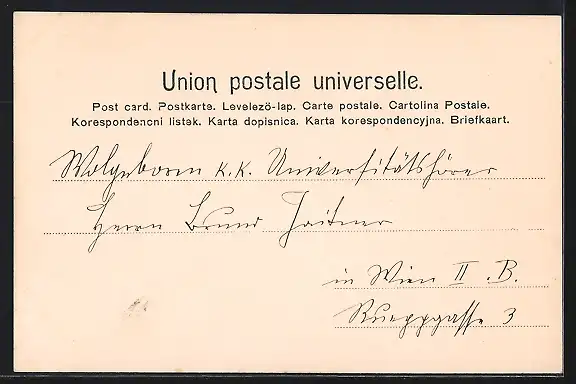 Union postale universelle.
Post card. Postkarte. Levelezö-lap. Carte postale. Cartolina Postale.
Korespondencni listek. Karta dopisnica. Karta korespondencyjna. Briefkaart.
Wolgeboren k.k. Universitätshörer
Herrn Bruno
in Wien II. B.
Rueppgasse 3